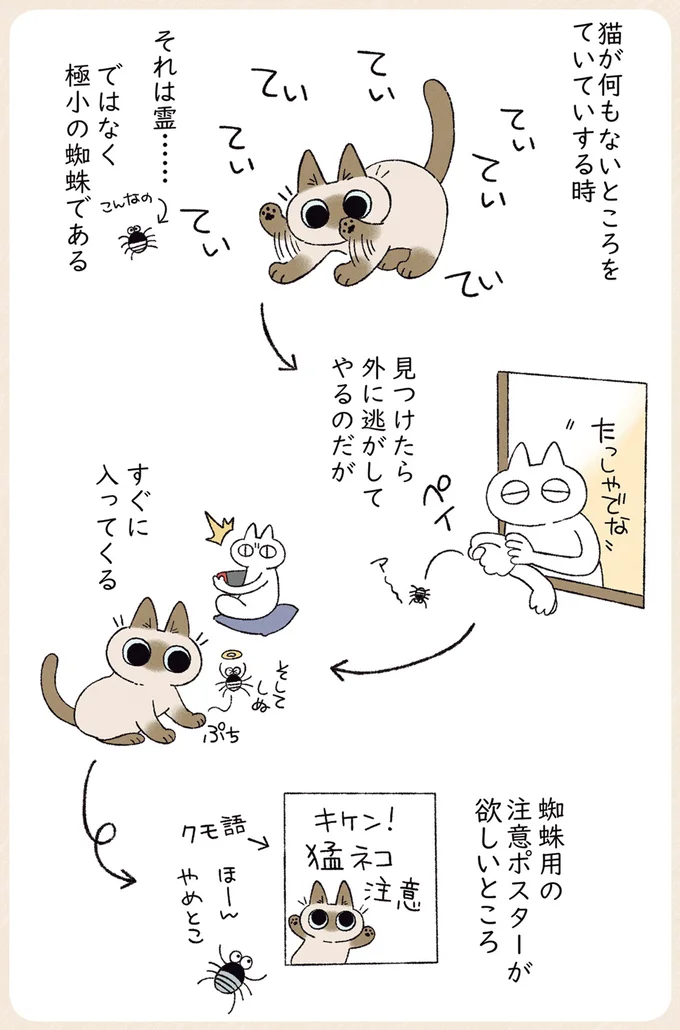 猫が何もないところを
ていていする時
てぃ
てぃ
てぃ
てぃ
てぃ
てぃ
てぃ
てぃ
それは霊……
ではなく
極小の蜘蛛である
こんなの
見つけたら
外に逃がして
やるのだが
〝たっしゃでな〟
ペイ
アー
すぐに
入ってくる
そして
しぬ
ぷち
蜘蛛用の
注意ポスターが
欲しいところ
クモ語
キケン!
猛ネコ
注意
ほーん
やめとこ